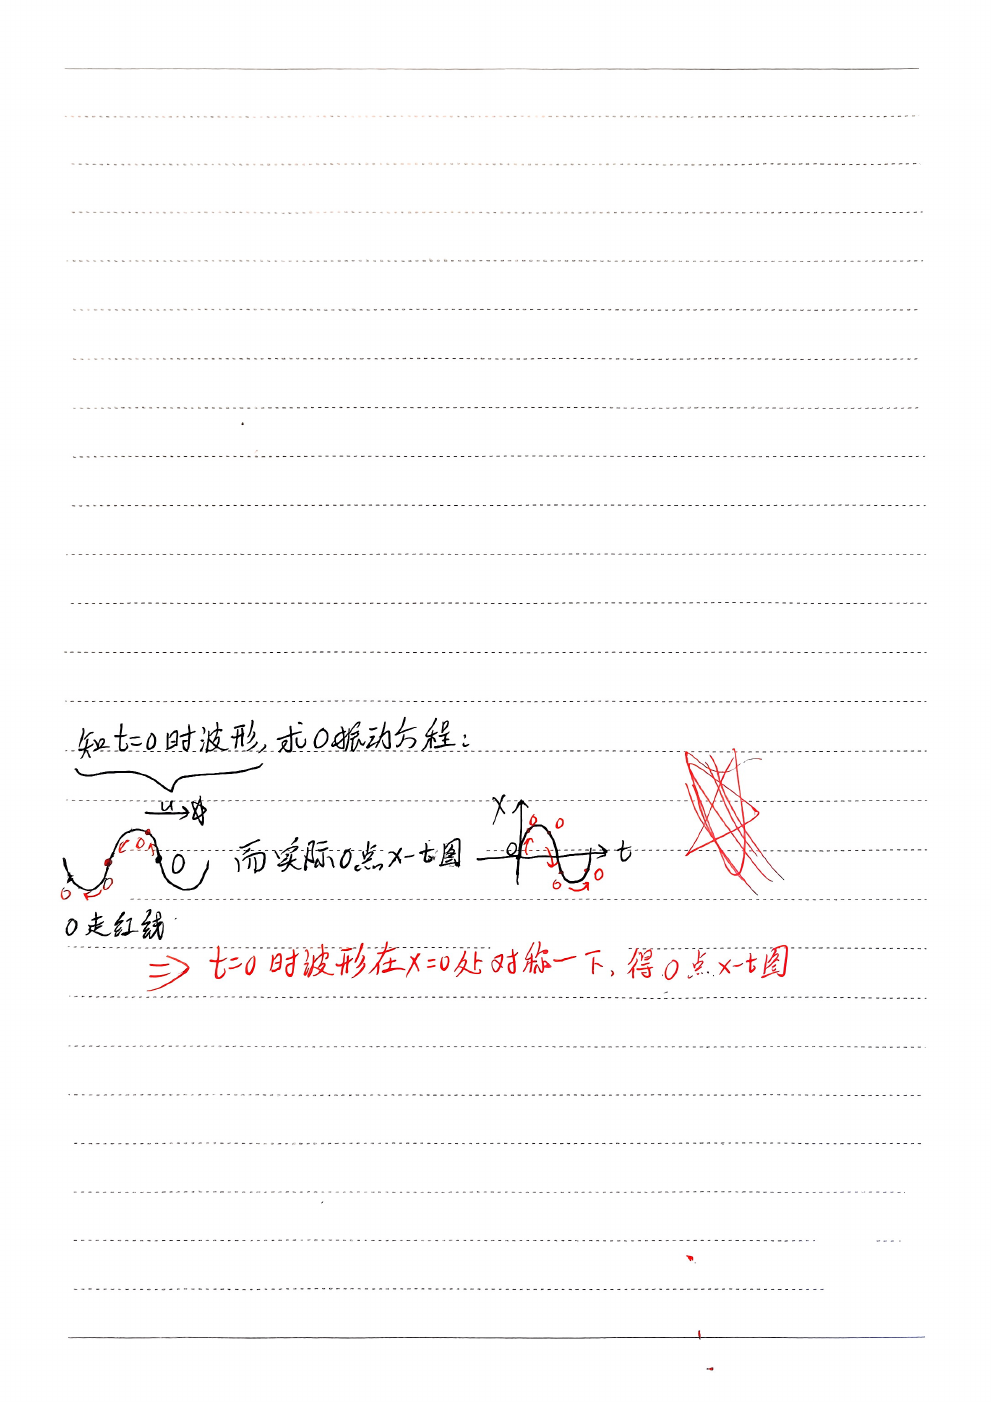 知t=0时波形,求O振动方程:
u
x
O 而实际O点x-t图 O t
O O O O O O O
O走红线
⇒ t=0时波形在x=0处对称一下,得O点x-t图